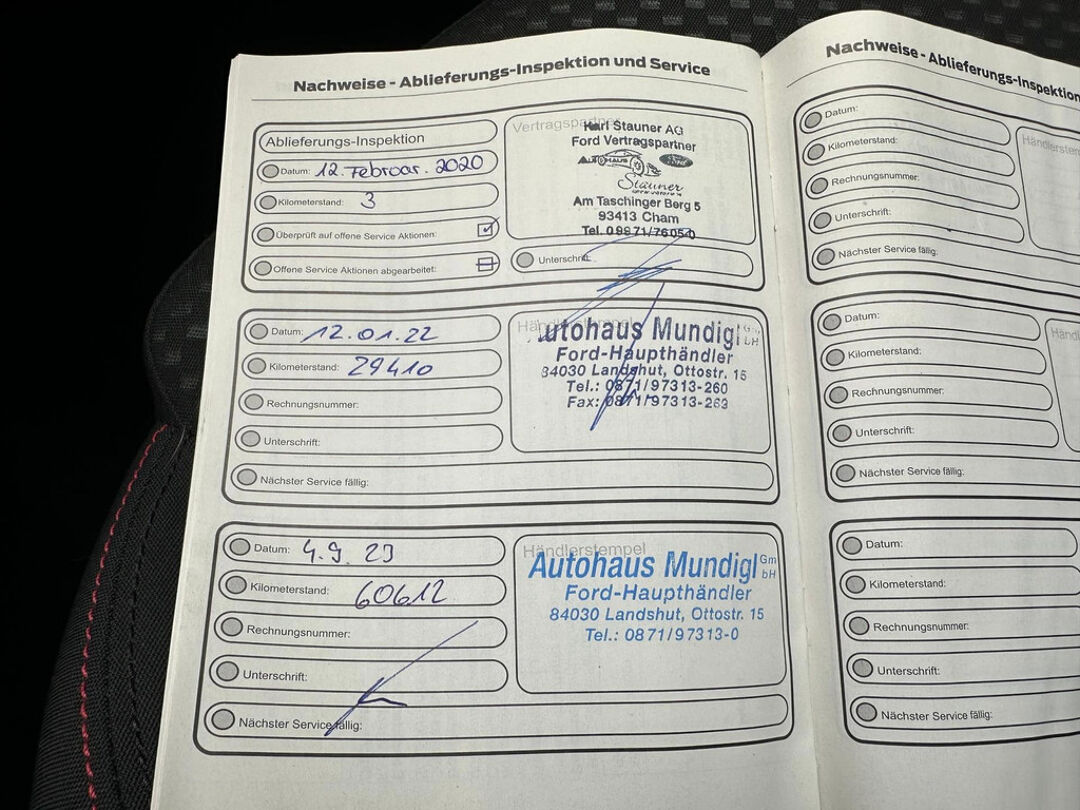 Nachweise - Ablieferungs-Inspektion und Service
Ablieferungs-Inspektion
Datum: 12. Februar. 2020
Kilometerstand: 3
Überprüft auf offene Service Aktionen:
Offene Service Aktionen abgearbeitet:
Vertragspartner
Karl Stauner AG
Ford Vertragspartner
AUTOHAUS
Ford
Stauner
Am Taschinger Berg 5
93413 Cham
Tel. 09971/7605-0
Unterschrift:
Datum: 12.01.22
Kilometerstand: 29410
Rechnungsnummer:
Unterschrift:
Nächster Service fällig:
Händlerstempel
Autohaus Mundigl GmbH
Ford-Haupthändler
84030 Landshut, Ottostr. 15
Tel.: 0871/97313-260
Fax: 0871/97313-263
Datum: 4.9.23
Kilometerstand: 60612
Rechnungsnummer:
Unterschrift:
Nächster Service fällig:
Händlerstempel
Autohaus Mundigl GmbH
Ford-Haupthändler
84030 Landshut, Ottostr. 15
Tel.: 0871/97313-0
Nachweise - Ablieferungs-Inspektion
Datum:
Kilometerstand:
Rechnungsnummer:
Unterschrift:
Nächster Service fällig:
Händlerstem
Datum:
Kilometerstand:
Rechnungsnummer:
Unterschrift:
Nächster Service fällig:
Händ
Datum:
Kilometerstand:
Rechnungsnummer:
Unterschrift:
Nächster Service fällig: